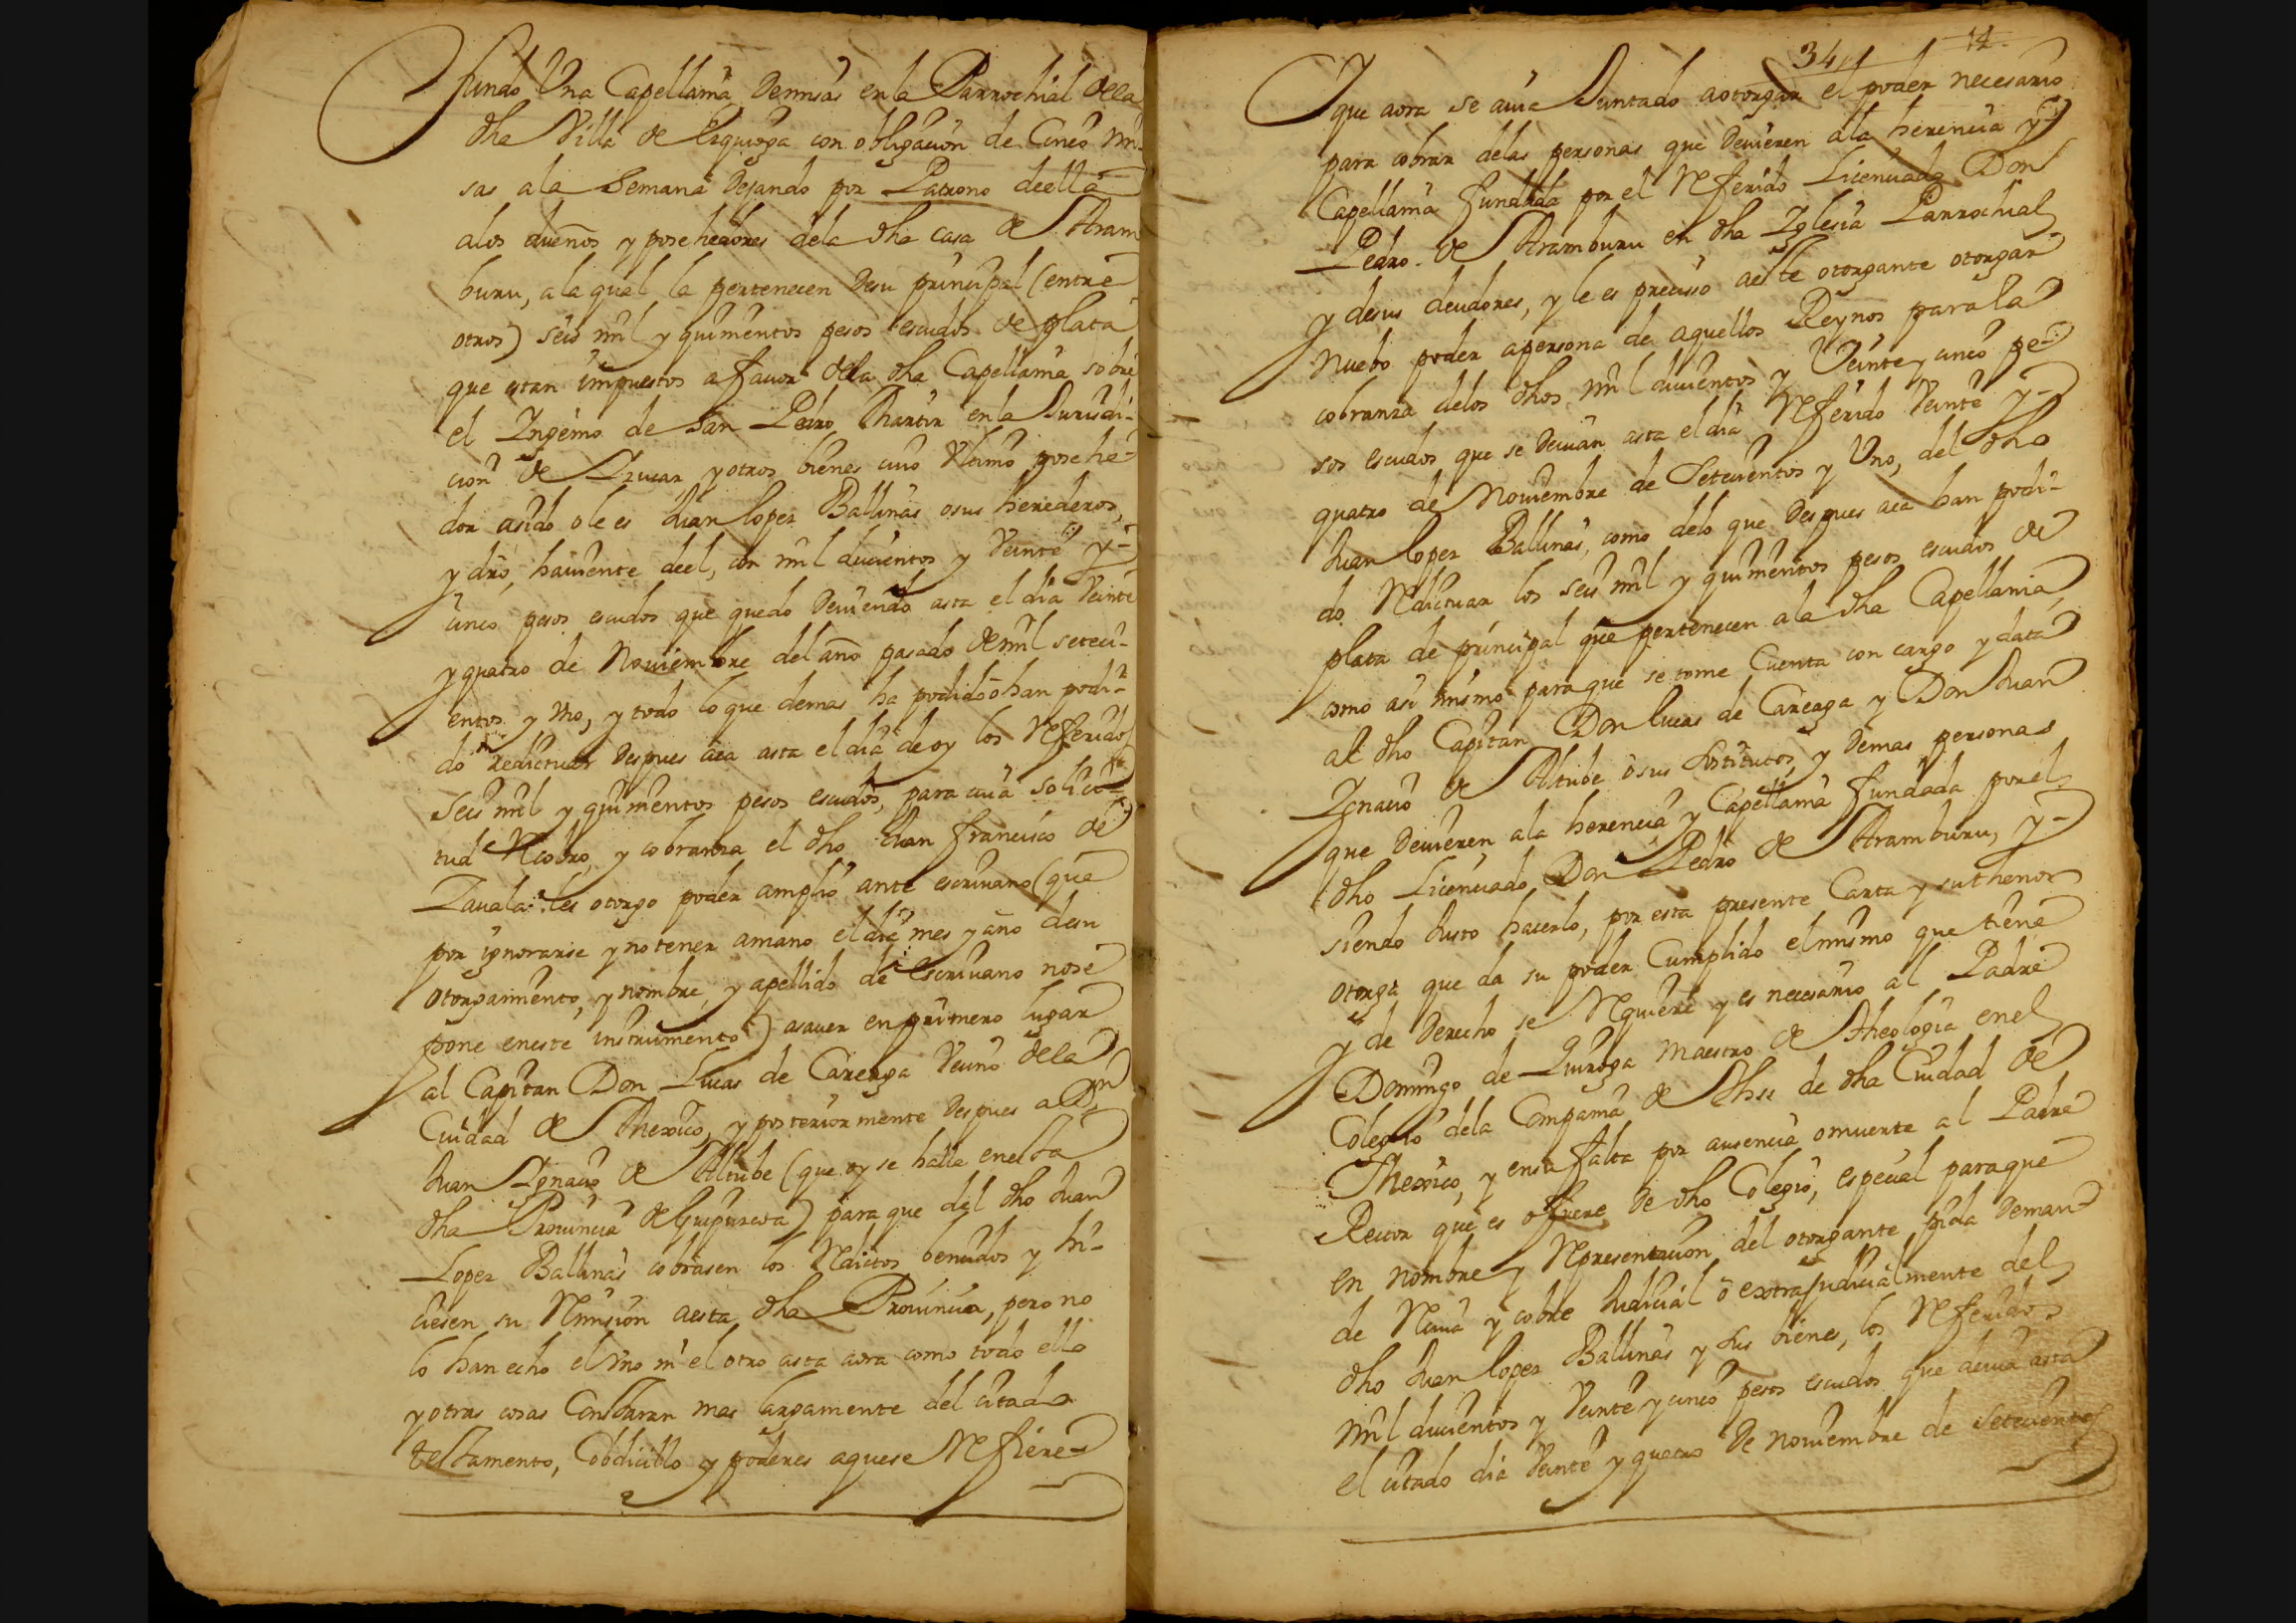 fundo Una Capellania demisas en la Parrochial dela
dha Villa de Ezquioga con obligacion de Cinco mi-
sas ala Semana dejando por Patrono deella
alos dueños y posehedores dela dha casa de Aram
buru, ala qual la pertenecen desu principal (entre
otros) seis mil y quinientos pesos escudos de plata
que estan impuestos a favor dela dha Capellania sobre
el Ingenio de San Pedro Martir en la Jurisdi-
cion de Yzucar y otros bienes cuio Vltimo posehe-
dor asido o le es Juan lopez Ballinas osus herederos,
y dro, haviente deel, con mil ducientos y Veinte y-
cinco pesos escudos que quedo deviendo asta el dia Veinte
y quatro de Noviembre del año pasado de mil seteci-
entos y Vno, y todo lo que demas ha podido ô han podi-
do redictuar despues aca asta el dia de oy los Referidos
Seis mil y quinientos pesos escudos, para cuia solici-
tud Recobro, y cobranza el dho Juan francisco de
Zavala les otorgo poder amplio ante escrivano (que
por ignorarse y no tener amano el dia mes y año desu
otorgamiento, y nombre, y apellido de escrivano nose
pone eneste instrumento) asaver en primero lugar
al Capitan Don Lucas de Careaga Vecino dela
Ciudad de Mexico, y posteriormente despues a Dn
Juan Ignacio de Altube (que oy se halla enesta
dha Provincia de Guipuzcoa) para que del dho Juan
Lopez Ballinas cobrasen los Reditos vencidos y hi-
ciesen su Remision aesta dha Provincia, pero no
lo han echo el Vno ni el otro asta aora como todo ello
y otras cosas Constaran mas largamente del citado
testamento, Cobdicillo y poderes aquese Refiere
34 14
Y que aora se avia Juntado aotorgar el poder necesario
para cobrar delas personas que devieren ala herencia y
Capellania fundada por el Referido Licenciado Don
Pedro de Aramburu en dha Iglesia Parrochial
y desus deudores, y le es preciso aeste otorgante otorgar
nuebo poder apersona de aquellos Reynos para la
cobranza delos dhos mil ducientos y Veinte y cinco pe-
sos escudos que se devian asta el dia Referido Veinte y-
quatro de Noviembre de Setecientos y Uno, del dho
Juan lopez Ballinas, como delo que despues aca han podi-
do Redictuar los seis mil y quinientos pesos escudos de
plata de principal que pertenecen ala dha Capellania
como asi mismo para que se tome Cuenta con cargo y data
al dho Capitan Don lucas de Careaga y Don Juan
Ignacio de Altube ò sus sostitutos, y demas personas
que devieren ala herencia y Capellania fundada por el
dho Licenciado Don Pedro de Aramburu, y-
siendo Justo hacerlo, por esta presente Carta y suthenor
otorga que da su poder Cumplido el mismo que tiene
y de derecho se Requiere y es necesario al Padre
Domingo de Quiroga Maestro de Theologia enel
Colegio dela Compania de Jhs de dha Ciudad de
Mexico, y ensu falta por ausencia omuerte al Padre
Rector que es ofuere de dho Colegio, especial paraque
en nombre y Representacion del otorgante pida deman
de Reciva y cobre Judicial ò extrajudicialmente del
dho Juan lopez Ballinas y sus bienes, los Referidos
mil ducientos y Veinte y cinco pesos escudos que devia asta
el citado dia Veinte y quatro de noviembre de setecientos